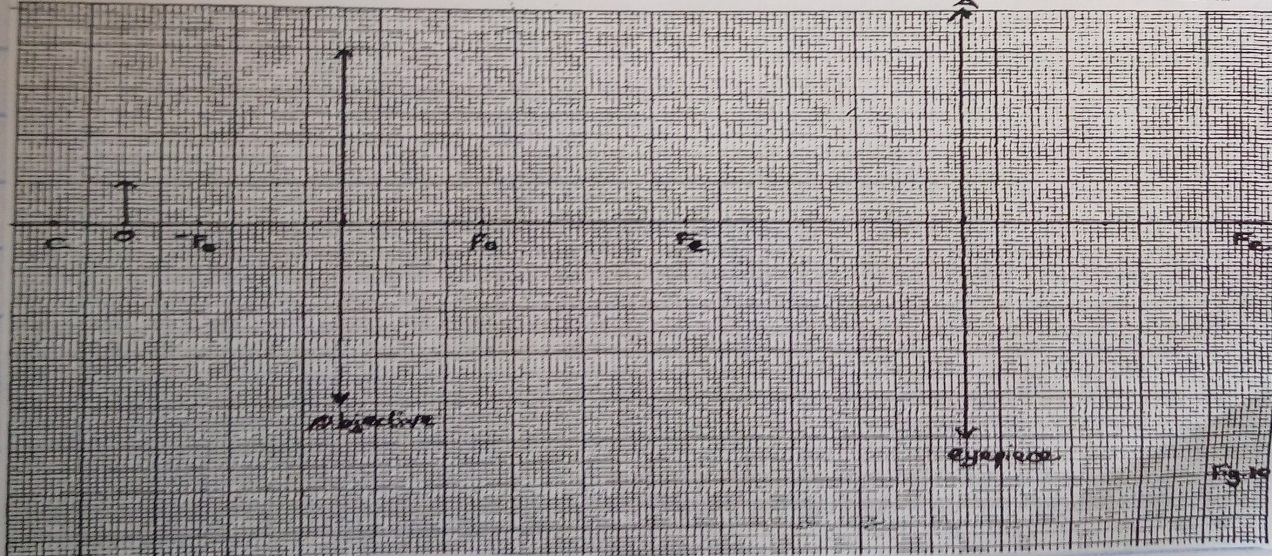 C O -Fo Fo Fe Fe
objective
eyepiece